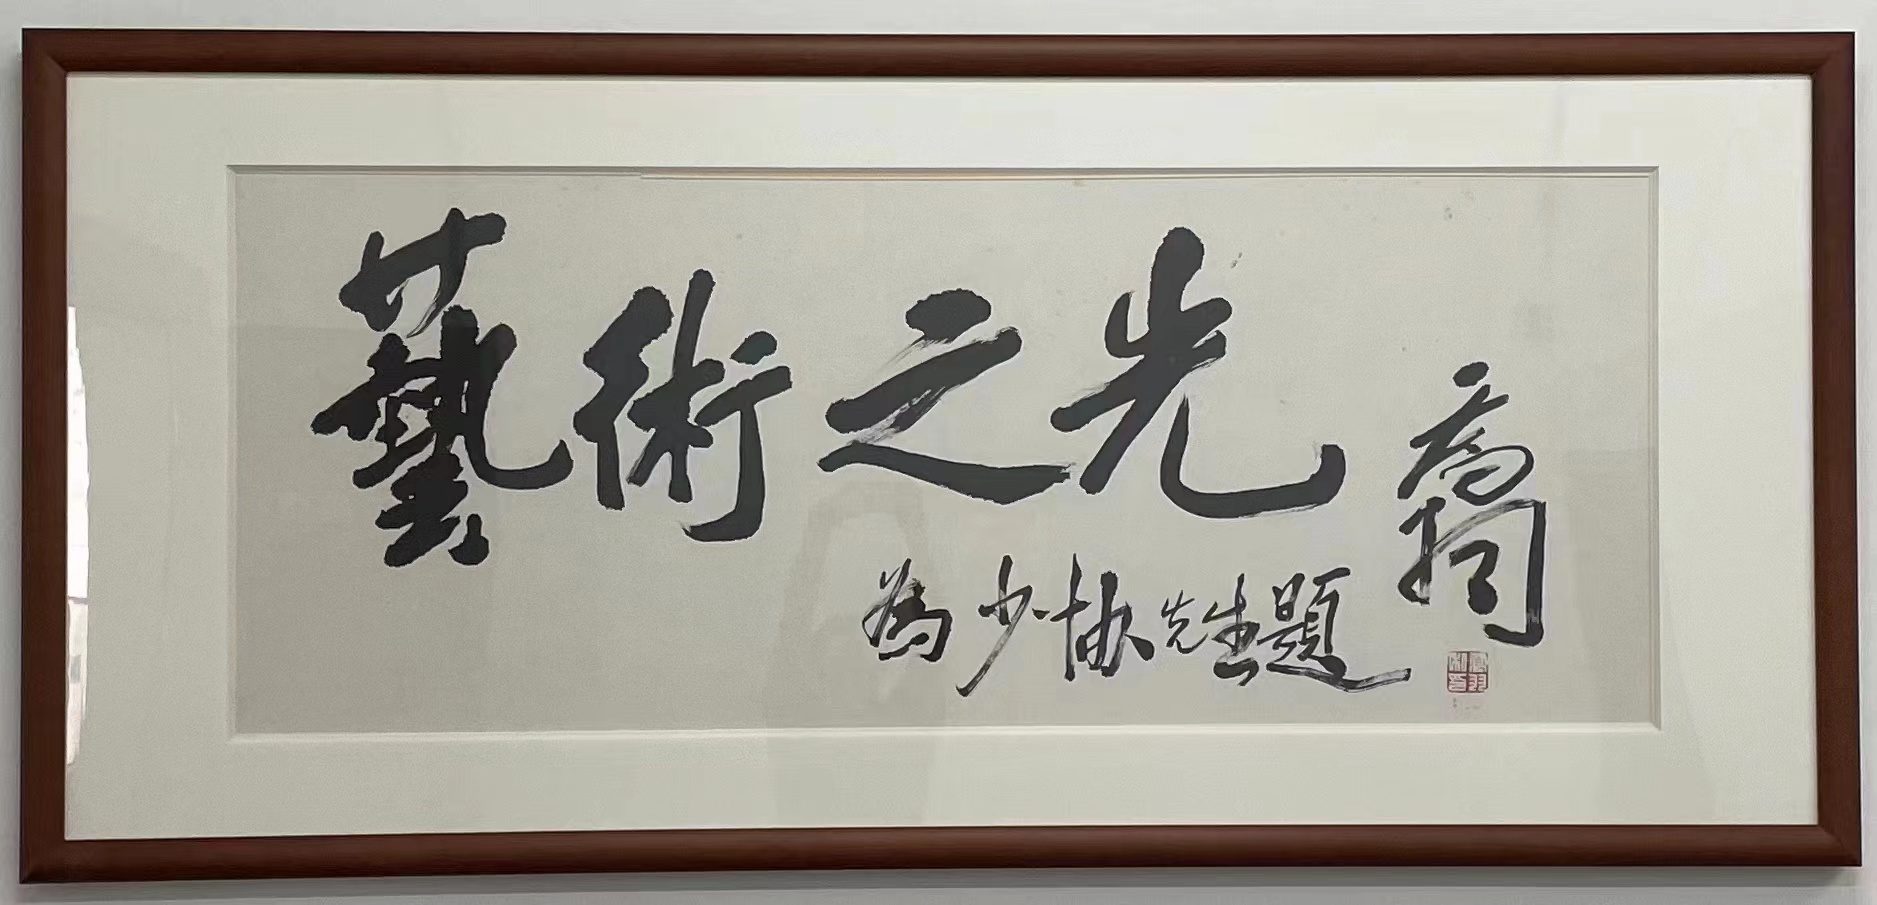 藝術之光
為少协先生題
喬羽